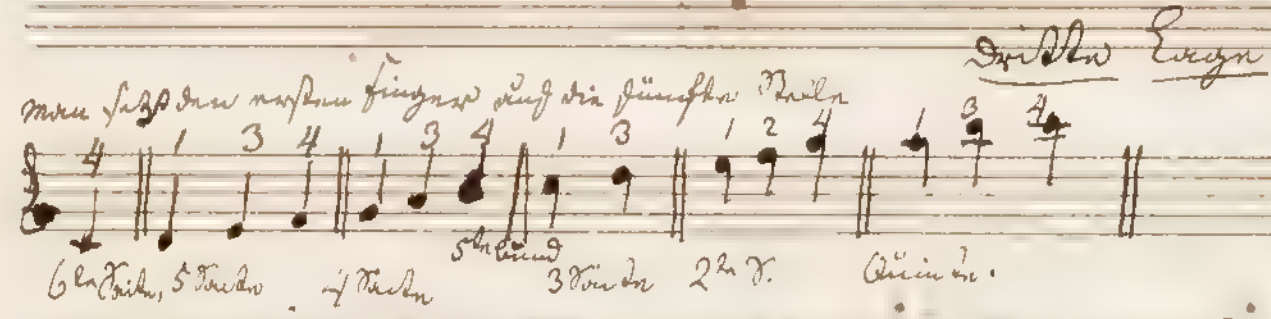 Dritte Lage
man setzt den ersten Finger auf die fünfte Stelle
4 1 3 4 1 3 4 1 3 1 2 4 1 3 4
5te bund
6te Saite, 5 Saite 4 Saite 3 Saite 2te S. Quinte.